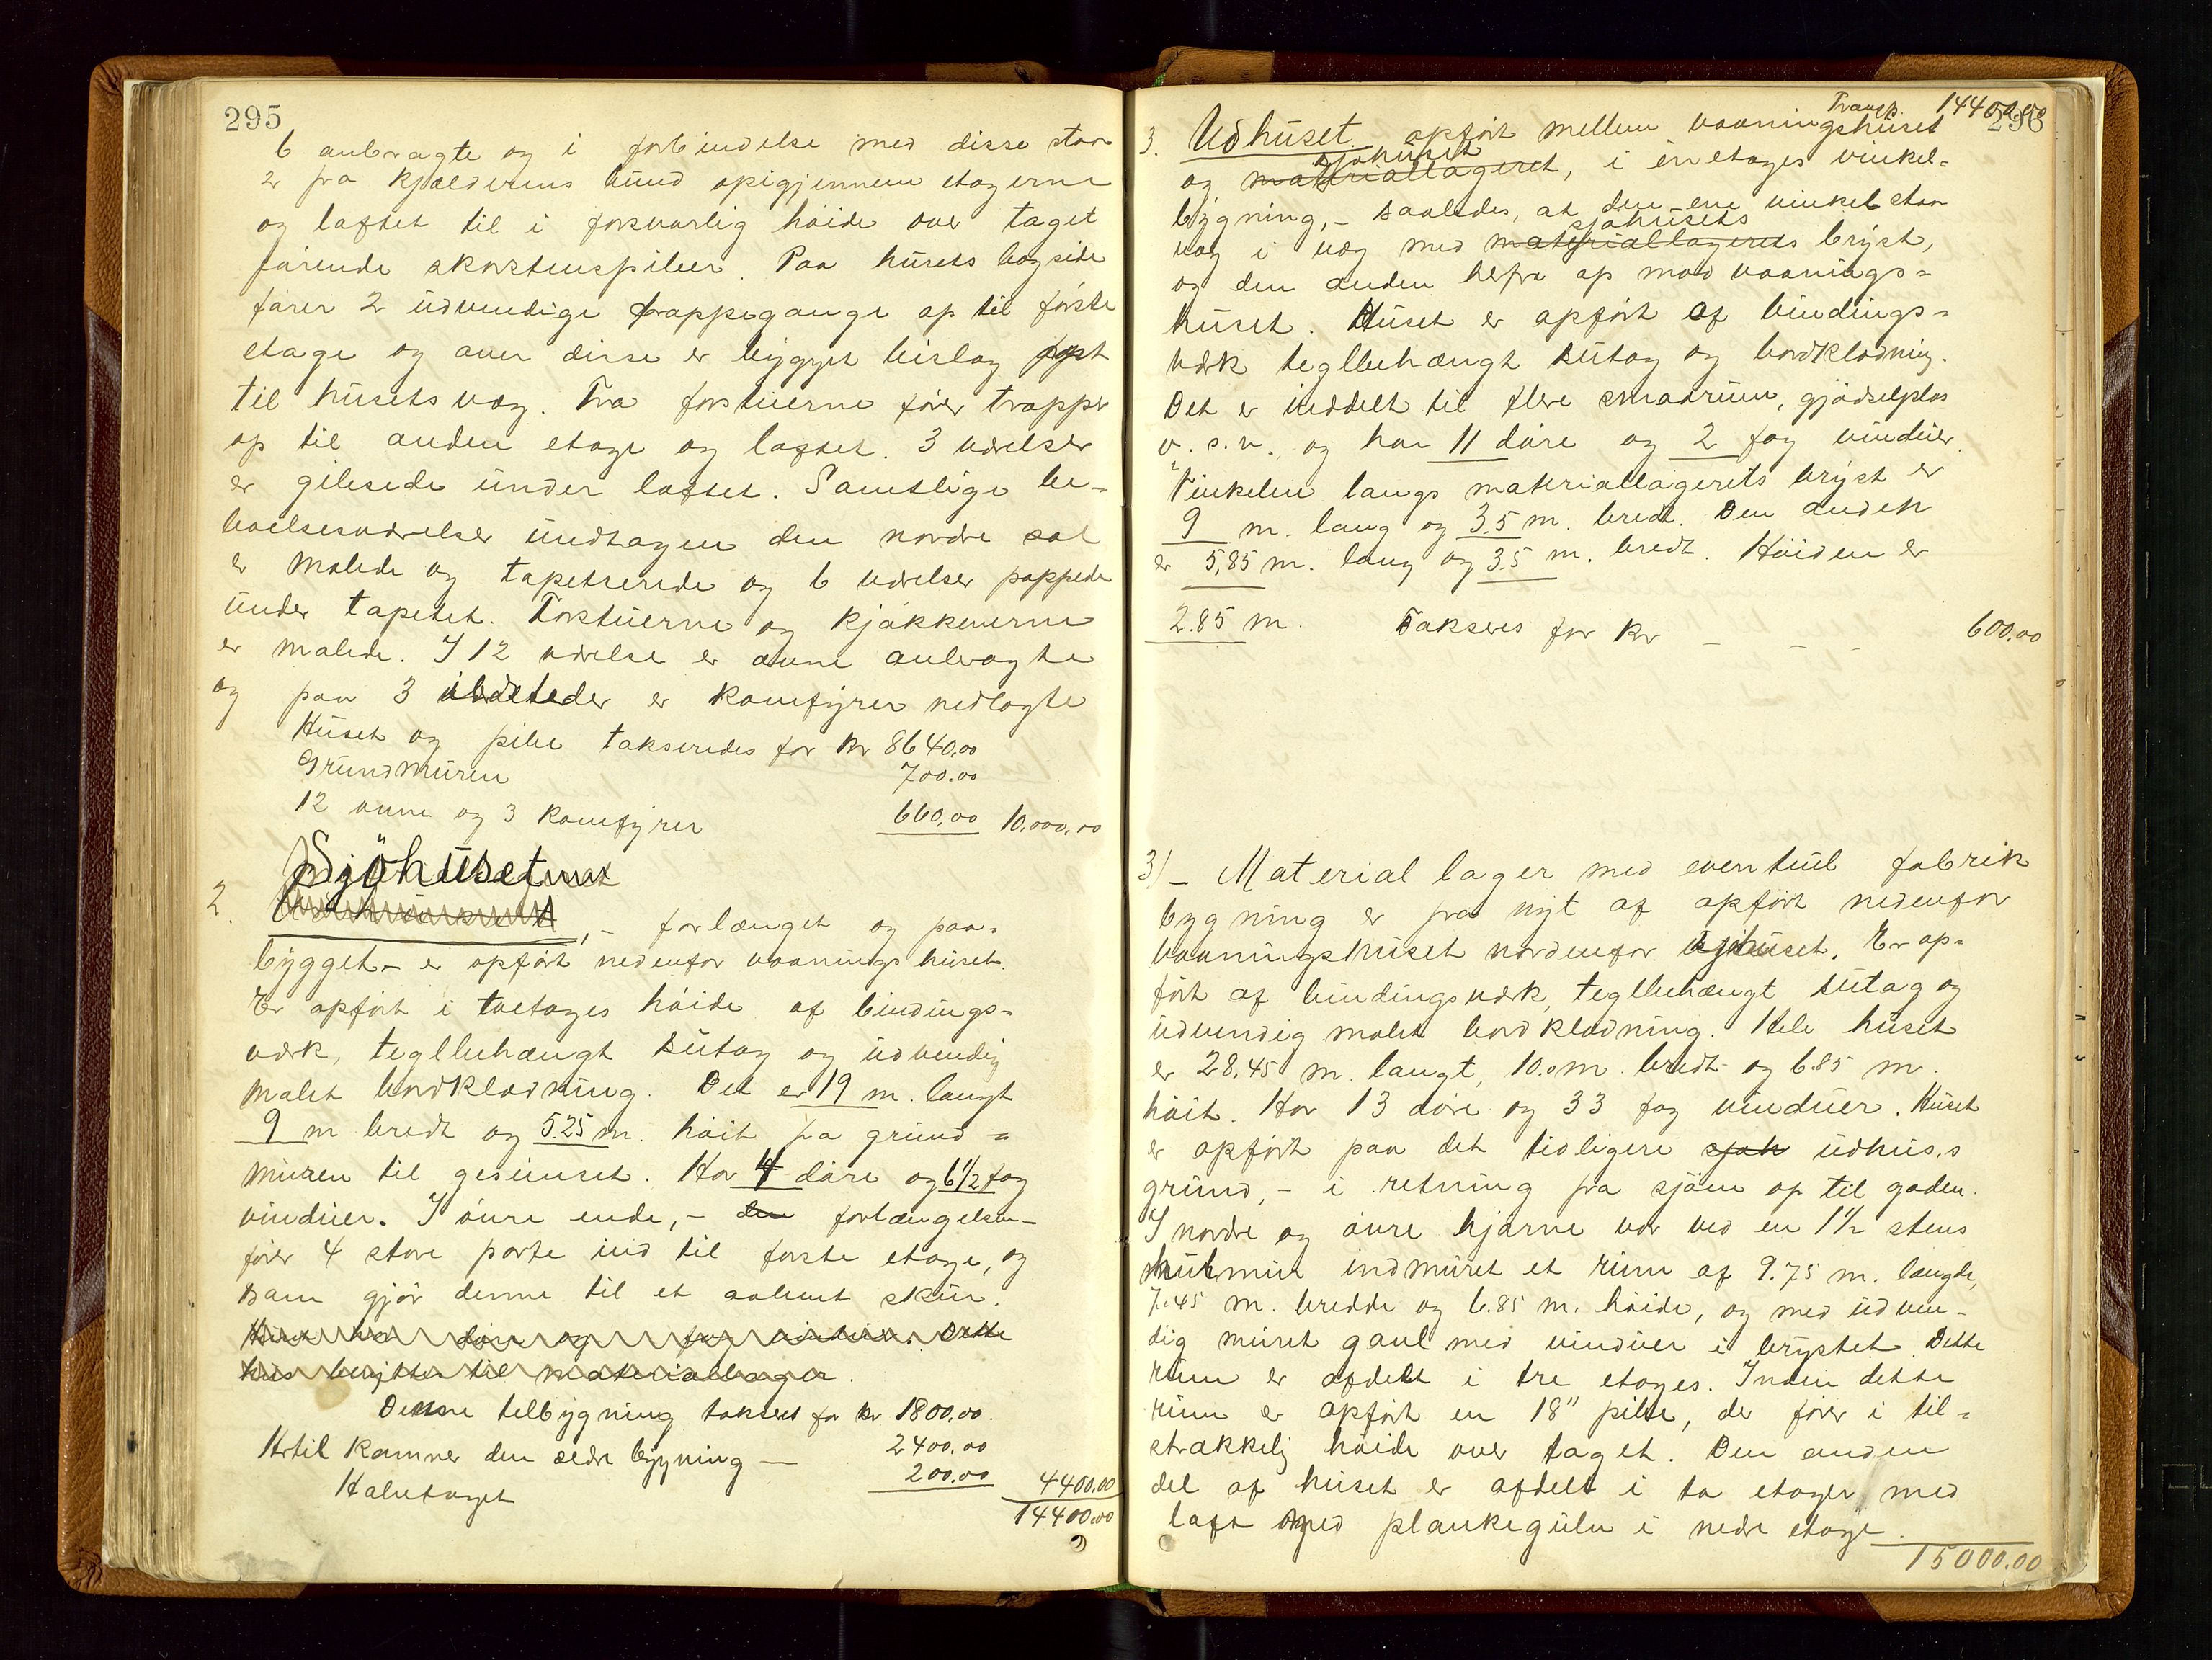 295
6 anbragte og i forbindelse med disse staar
2 fra kjælderens bund opigjennem etagerne
og loftet til i forsvarlig höide over taget
förende skorstenspiber. Paa husets bagside
förer 2 udvendige trappegange op til förste
etage og over disse er bygget bislag fast
til husets væg. Fra forstuerne förer trapper
op til anden etage og loftet. 3 værelser
er gibsede under loftet. Samtlige be-
boelsesværelser undtagen den nordre sal
er malede og tapetserede og 6 værelser pappede
under tapetet. Forstuerne og kjökkenerne
er malede. I 12 værelser er ovne anbragte
og paa 3 ildsteder er komfyrer nedlagte
Huset og pibe takseredes for kr 8640,00
Grundmuren 700.00
12 ovne og 3 komfyrer 660,00 10.000,00
2. Sjöhuset
,- forlænget og paa-
bygget - er opfört nedenfor vaaningshuset.
Er opfört i toetages höide af bindings-
værk, teglbehængt sutag og udvendig
malet bordklædning. Det er 19 m. langt
9 m bredt og 5.25 m. höit fra grund-
muren til gesimset. Har 4 döre og 6½ fag
vinduer. I övre ende,- den forlængelsen-
förer 4 store porte ind til förste etage, og
som gjör denne til et aabent skur.
Huset har döre og fag vinduer. Dette
hus benyttes til materiallager.
Denne tilbygning takseret for kr 1800,00.
Hertil kommer den ældre bygning — 2400,00
Halvtaget 200,00 4400.00
14400,00
Transp. 14400,00
296
3. Udhuset. opfört mellem vaaningshuset
sjöhuset
og materiallageret, i én etages vinkel-
bygning,- saaledes, at den ene vinkel staar
sjöhusets
væg i væg med materiallagerets bryst,
og den anden herfra op mod vaanings-
huset. Huset er opfört af bindings-
værk teglbehængt sutag og bordklædning.
Det er inddelt til flere smaarum, gjödselplas
o. s. v., og har 11 döre og 2 fag vinduer.
Vinkelen langs materiallagerets bryst er
9 m. lang og 3.5 m. bredt. Den anden
er 5,85 m. lang og 3.5 m. bredt. Höiden er
2.85 m. Takseres for kr — — — 600.00
3/ - Materiallager med eventuel fabrik
bygning er fra nyt af opfört nedenfor
vaaningshuset nordenfor sjöhuset. Er op-
fört af bindingsværk, teglbehængt sutag og
udvendig malet bordklædning. Hele huset
er 28.45 m. langt, 10.0 m. bredt og 6.85 m.
höit. Har 13 döre og 33 fag vinduer. Huset
er opfört paa det tidligere sjöh udhus.s
grund,- i retning fra sjöen op til gaden.
I nordre og övre hjörne var ved en 1½ stens
hulmur indmuret et rum af 9.75 m. længde,
7.45 m. bredde og 6.85 m. höide, og med udven-
dig muret gavl med vinduer i brystet. Dette
rum er afdelt i tre etages. Inden dette
rum er opfört en 18" pibe, der förer i til-
strækkelig höide over taget. Den anden
del af huset er afdelt i to etager med
loft med plankegulv i nedre etage.
15000.00